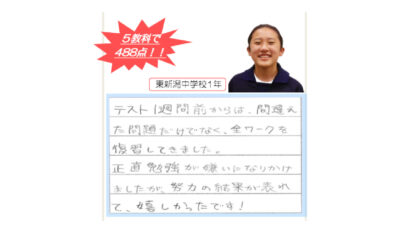 5教科で
488点！！
東新潟中学校1年
テスト1週間前からは、間違え
た問題だけでなく、全ワークを
復習してきました。
正直勉強が嫌いになりかけ
ましたが、努力の結果が表れ
て、嬉しかったです！